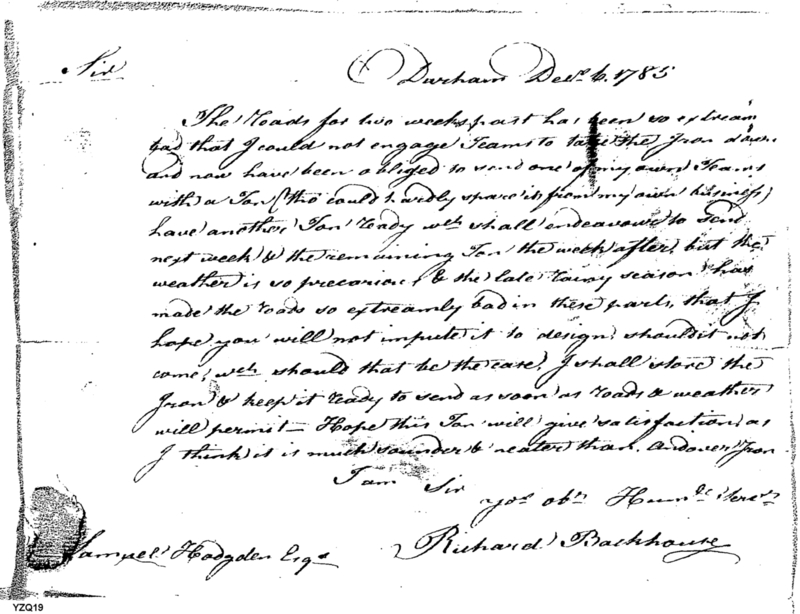 Sir
Durham Decr. 6. 1785
The Roads for two weeks past has been so extream
bad that I could not engage Teams to take the Iron down
and now have been obliged to send one of my own Teams
with a Ton (tho could hardly spare it from my own business)
have another Ton ready wch shall endeavour to send
next week & the remaining Ton the week after, but the
weather is so precarious & the late rainy season has
made the roads so extreamly bad in these parts, that I
hope you will not impute it to design, should it not
come, wch should that be the case, I shall store the
Iron & keep it ready to send as soon as roads & weather
will permit – Hope this Ton will give satisfaction, as
I think it is much sounder & neater than Andover Iron
I am Sir
yor. obt. Humble Servt
Samuel Hodgden Esqr
Richard Backhouse
YZQ19